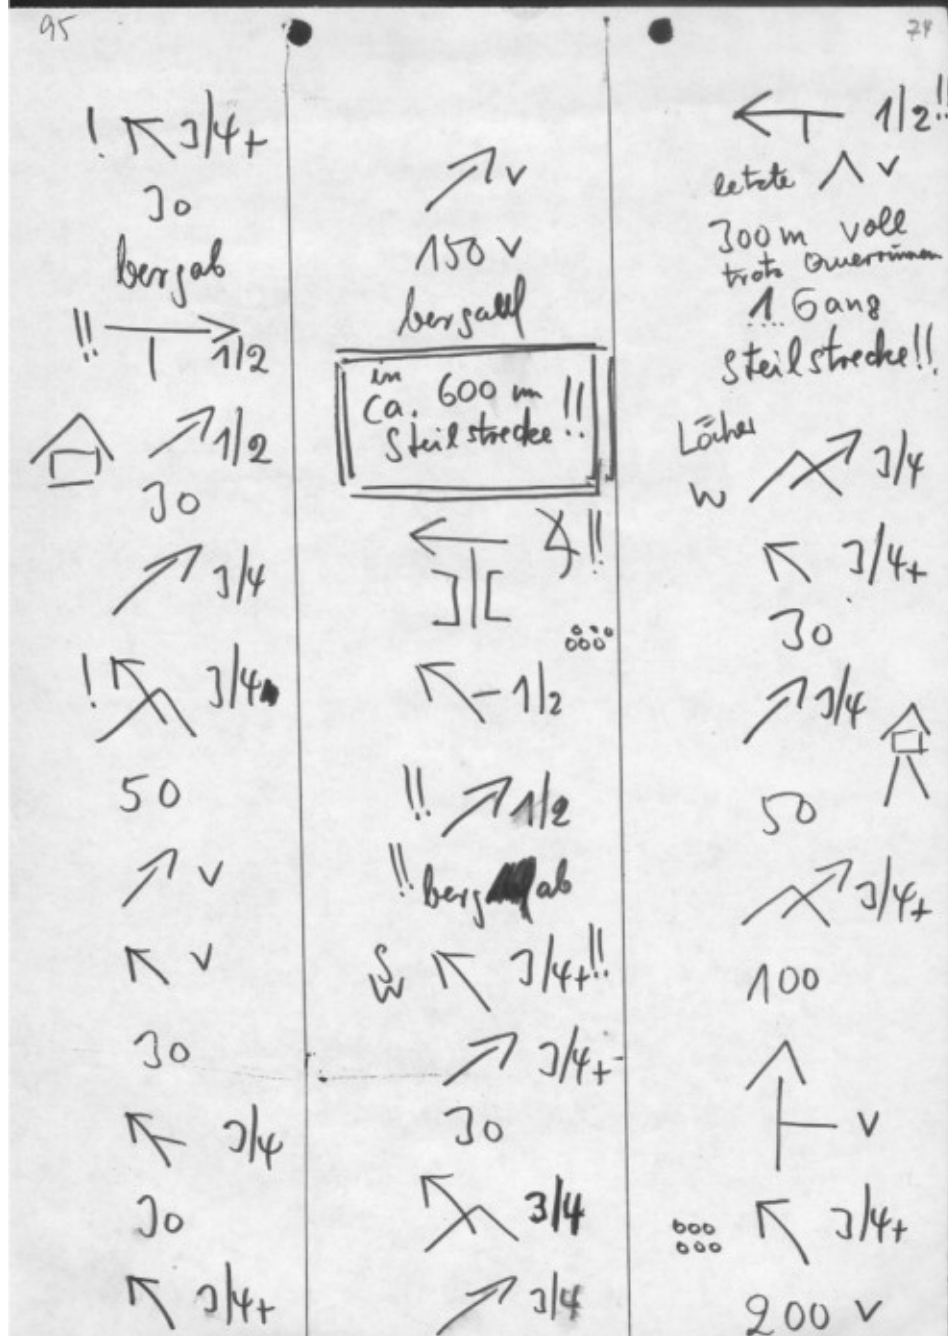 95
! 3/4+
30
bergab
!! 1/2
1/2
30
3/4
! 3/4
50
v
v
30
3/4
30
3/4+
v
150 v
in
ca. 600 m !!
Steilstrecke
!!
1/2
!! 1/2
!! bergab
S
W 3/4+!!
3/4+
30
3/4
3/4
74
1/2!!
letzte v
300 m voll
trotz Querrinnen
1 Gang
Steilstrecke!!
Löcher
W 3/4
3/4+
30
3/4
50
3/4+
100
v
3/4+
200 v